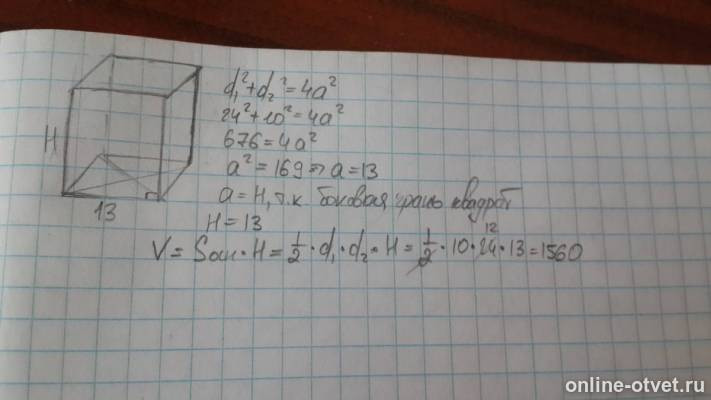 H
13
d₁²+d₂²=4a²
24²+10²=4a²
676=4a²
a²=169⇒a=13
a=H, т.к боковая грань квадрат
H=13
V= Sосн·H=½·d₁·d₂·H=½·10·24·13=1560
12
online-otvet.ru